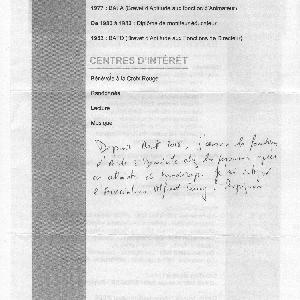 1977 : BAFA (Brevet d'Aptitude aux fonction d'Animateur)
De 1980 à 1983 : Diplôme de moniteur éducateur
1983 : BAFD (Brevet d'Aptitude aux Fonctions de Directeur)
CENTRES D'INTÉRÊT
Bénévole à la Croix Rouge
Randonnée
Lecture
Musique
Depuis j'exerce la fonction
d'Aide à Domicile chez les personnes
et handicap. Je
à Association Alfred